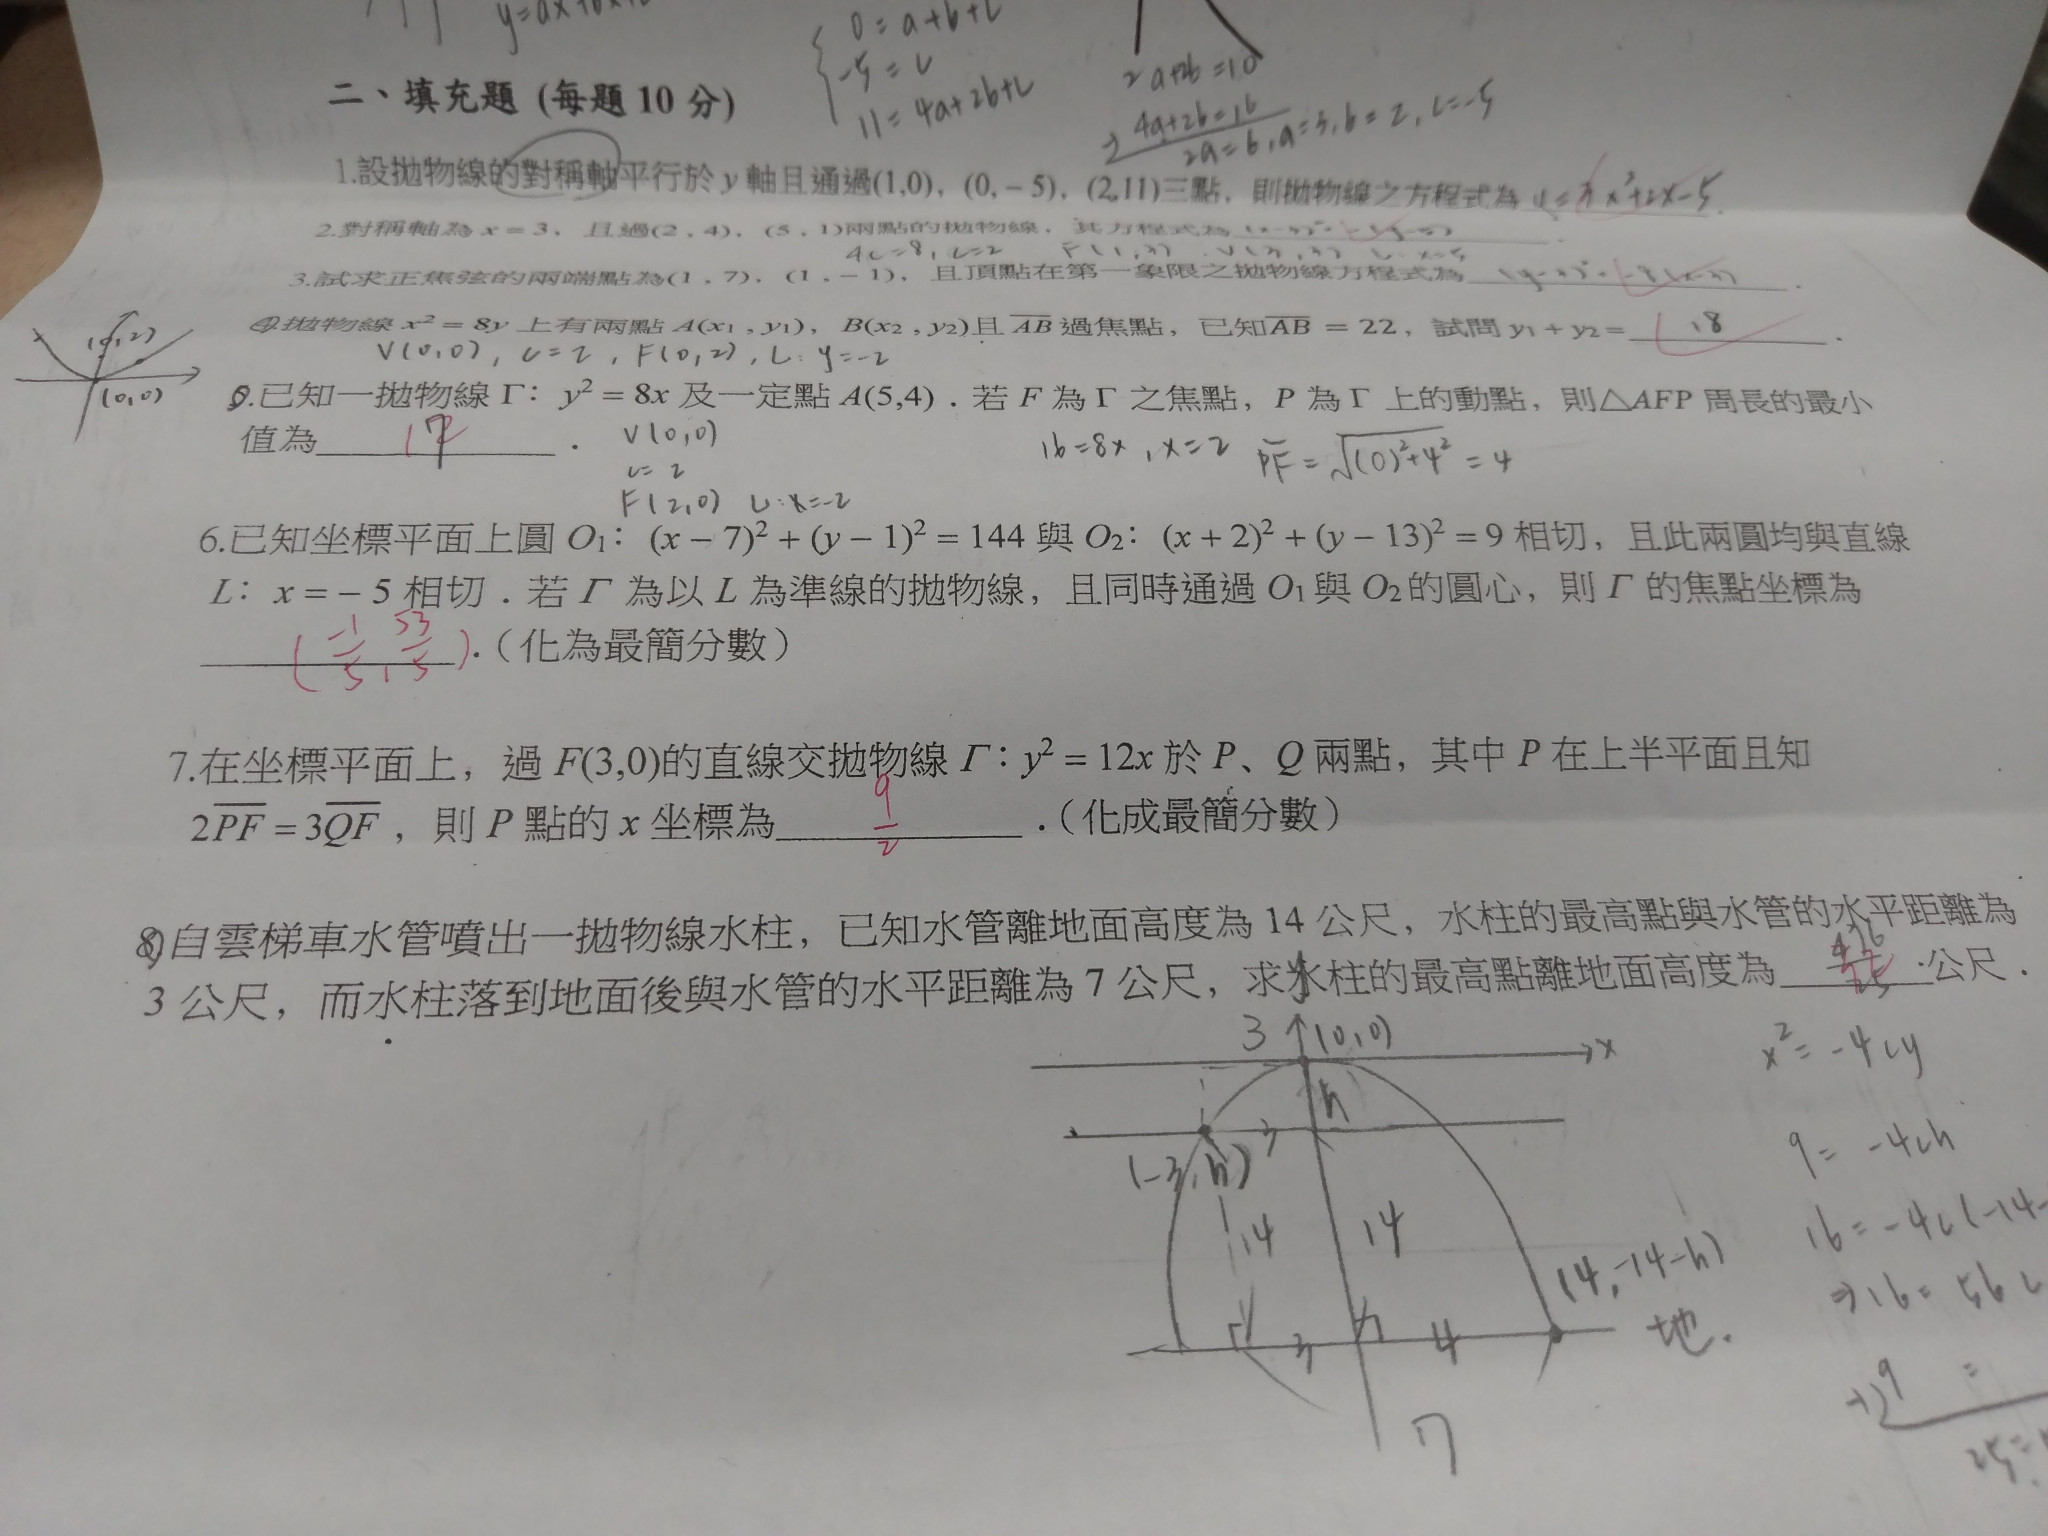 y=ax+bx+c
0=a+b+c
-5=c
11=4a+2b+c
2a+2b=10
4a+2b=16
2a=6, a=3, b=2, c=-5
二、填充題 (每題 10 分)
1.設拋物線的對稱軸平行於 y 軸且通過(1,0), (0,-5), (2,11)三點, 則拋物線之方程式為 y=3x²+2x-5.
2.對稱軸為 x=3, 且過(2,4), (5,1)兩點的拋物線, 其方程式為
4c=8, c=2 F(1,3) V(3,3) L: x=5
3.試求正焦弦的兩端點為(1,7), (1,-1), 且頂點在第一象限之拋物線方程式為 (y-3)²=-8(x-3).
4.拋物線 x² = 8y 上有兩點 A(x₁,y₁), B(x₂,y₂)且 AB 過焦點, 已知AB = 22, 試問 y₁+y₂= 18.
V(0,0), c=2, F(0,2), L: y=-2
(0,2)
(0,0)
5.已知一拋物線 Γ: y² = 8x 及一定點 A(5,4). 若 F 為 Γ 之焦點, P 為 Γ 上的動點, 則△AFP 周長的最小
值為 .
V(0,0)
c=2
F(2,0) L:x=-2
16=8x, x=2 PF=√(0)²+4² =4
6.已知坐標平面上圓 O₁: (x-7)²+(y-1)²=144 與 O₂: (x+2)²+(y-13)²=9 相切, 且此兩圓均與直線
L: x=-5 相切. 若 Γ 為以 L 為準線的拋物線, 且同時通過 O₁與 O₂的圓心, 則 Γ 的焦點坐標為
(-1/5, 53/5).(化為最簡分數)
7.在坐標平面上, 過 F(3,0)的直線交拋物線 Γ: y² = 12x 於 P、Q 兩點, 其中 P 在上半平面且知
2PF = 3QF, 則 P 點的 x 坐標為 9/2 .(化成最簡分數)
8.自雲梯車水管噴出一拋物線水柱, 已知水管離地面高度為 14 公尺, 水柱的最高點與水管的水平距離為
3 公尺, 而水柱落到地面後與水管的水平距離為 7 公尺, 求水柱的最高點離地面高度為 公尺.
3 (0,0) x
h
3
(-3,h)
14 14
(4,-14-h)
3 4 地.
7
x²=-4cy
9=-4ch
16=-4c(-14-
⇒16=56c
9 =
25=